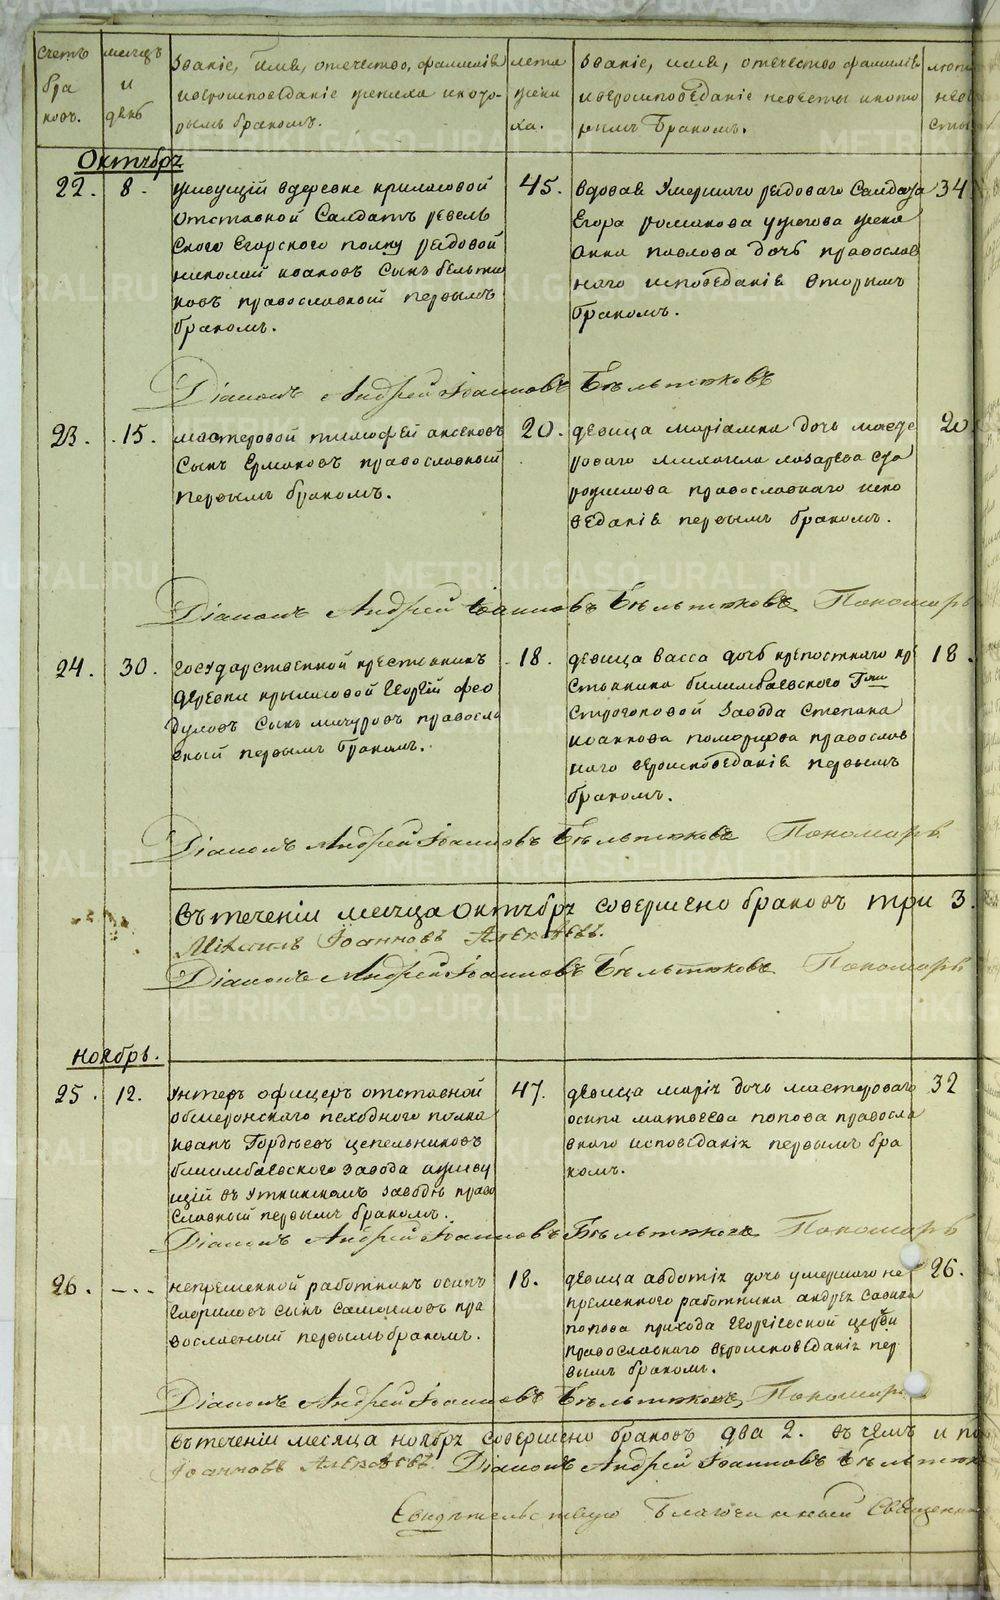 Счетъ
бра
ковъ.
месяцъ
и
день
Званіе, имя, отечество, фамилія
и вероисповеданіе жениха и кото-
рымъ бракомъ.
лета
жени
ха.
Званіе, имя, отечество фамилія
и вероисповеданіе невесты и кото
рымъ бракомъ.
лета
неве
сты
Октябрь
22. 8.
живущій вдеревне криласовой
отставной Салдатъ ревель
ского Егорского полку рядовой
николай иоановъ сынъ бельтю
ковъ православный первымъ
бракомъ.
45.
вдовая умершаго рядоваго Салдата
Егора романова ужегова жена
Анна павлова дочь православ
наго исповеданія вторымъ
бракомъ.
34
Діаконъ Андрей Іоанновъ Бѣльтюковъ
23. 15.
мастеровой тимофей аксеновъ
Сынъ Ермаковъ православный
первымъ бракомъ.
20.
девица маріамна дочь масте
роваго михаила лазарева ста
рожилова православнаго испо
веданія первымъ бракомъ.
20
Діаконъ Андрей Іоанновъ Бѣльтюковъ Пономарь
24. 30.
государственной крестьянинъ
деревни крыласовой Георгій фео
дуловъ сынъ мичуровъ правосла
вный первымъ бракомъ.
18.
девица васса дочь крепостнаго кре
стьянина билимбаевского Гжи
Строгоновой завода Степана
иоаннова поморцова православ
наго вероисповеданія первымъ
бракомъ.
18.
Діаконъ Андрей Іоанновъ Бѣльтюковъ Пономарь
Въ теченіи месяца октябрь совершено браковъ три 3.
Михаилъ Іоанновъ Алексѣевъ.
Діаконъ Андрей Іоанновъ Бѣльтюковъ Пономарь
ноябрь.
25. 12.
унтеръ офицеръ отставной
обшеронскаго пеходного полка
иванъ Гордѣевъ цепельниковъ
билимбаевского завода а живу
щій въ уткинскомъ заводѣ право
славный первымъ бракомъ.
47.
девица марія дочь мастероваго
осипа матвеева попова правосла
внаго исповеданія первымъ бра
комъ.
32
Діаконъ Андрей Іоанновъ Бѣльтюковъ Пономарь
26. -.-
непременной работникъ осипъ
Гавриловъ сынъ Самойловъ пра
вославный первымъ бракомъ.
18.
девица авдотія дочь умершаго не
пременного работника андрея Савина
попова прихода Георгіевской церкви
православнаго вероисповеданія пер
вымъ бракомъ.
26.
Діаконъ Андрей Іоанновъ Бѣльтюковъ Пономарь
въ теченіи месяца ноябрь совершено браковъ два 2. въ чемъ и по
Іоанновъ Алексѣевъ. Діаконъ Андрей Іоанновъ Бѣльтюк
Свидѣтельствую Благочинный Священник
METRIKI.GASO-URAL.RU